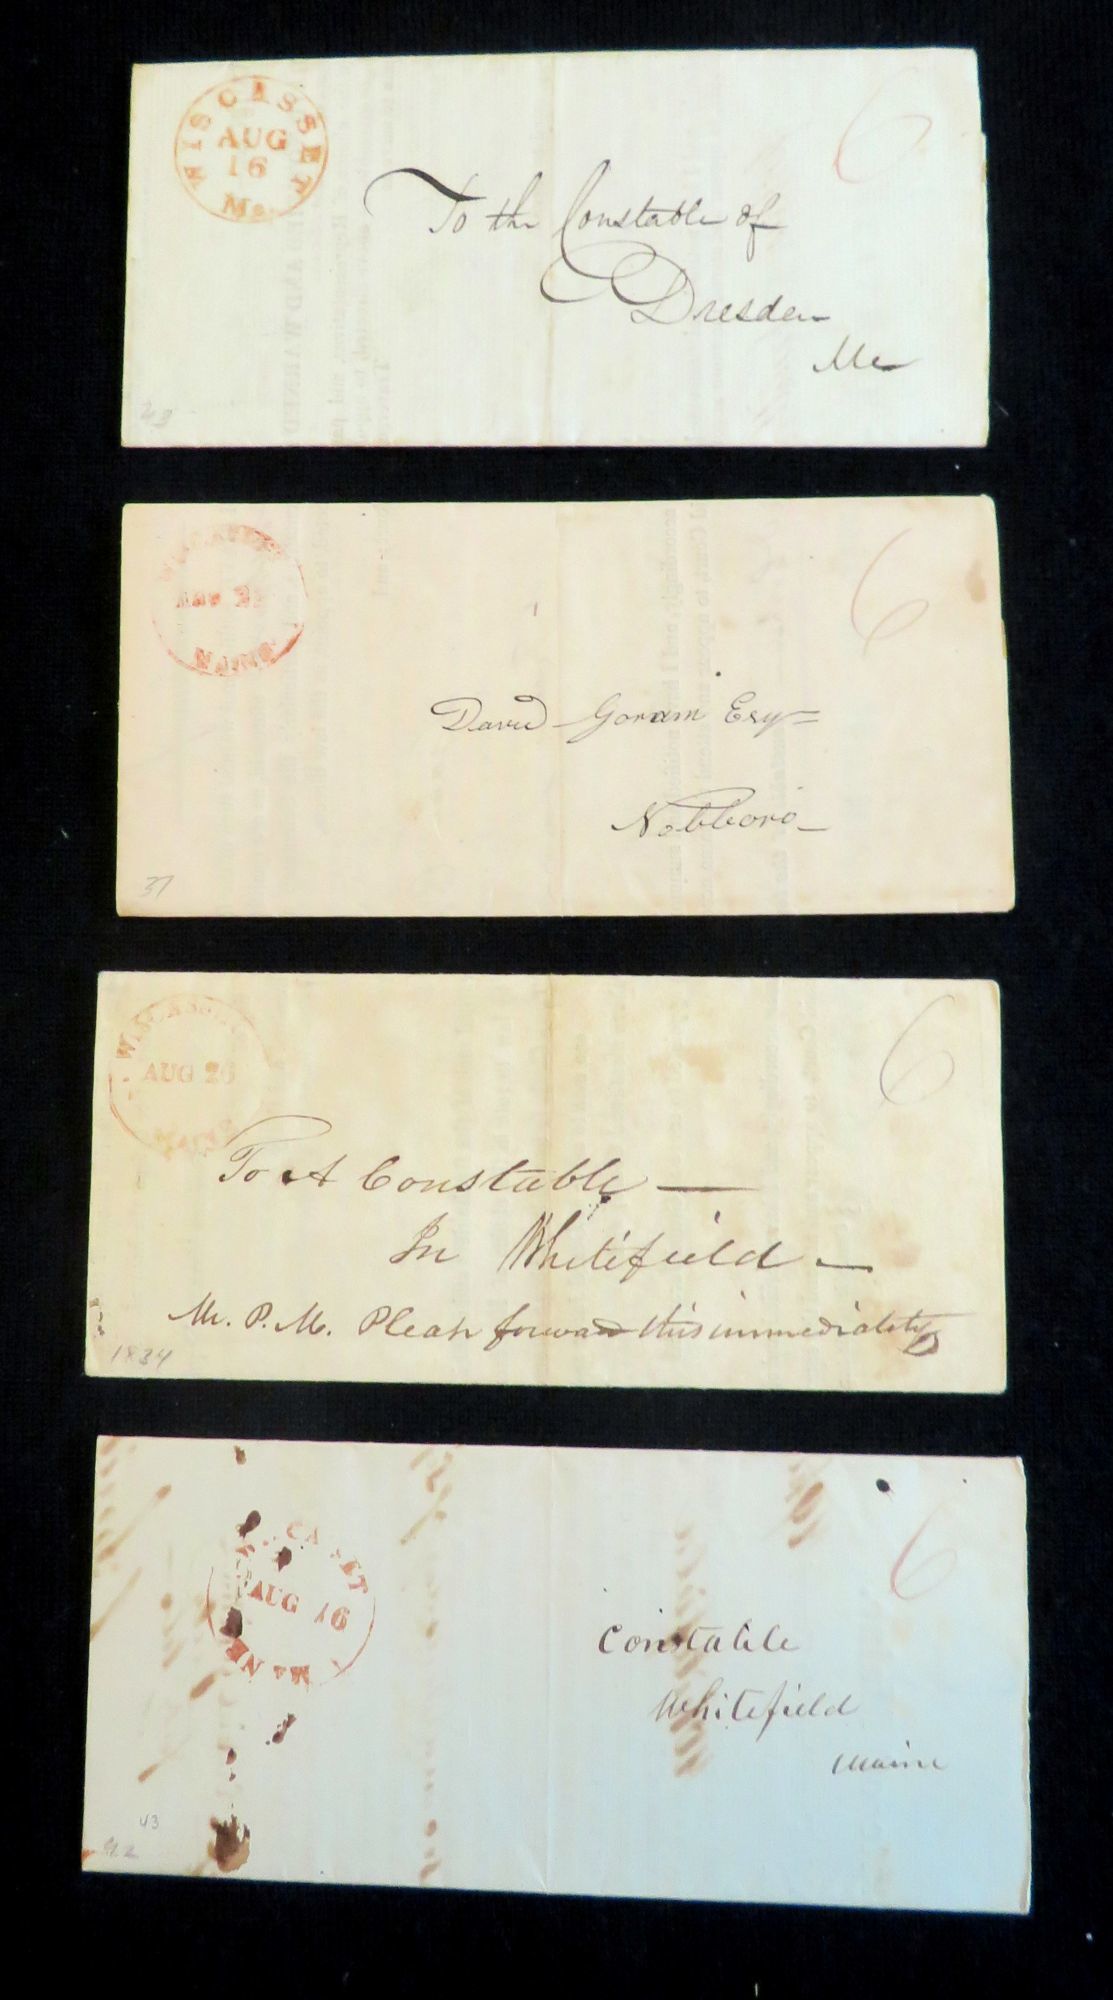 WISCASSET
AUG
16
Me.
6
To the Constable of
Dresden
Me
AND WARNED
43
WISCASSET
6
MAINE
David Goram Esq
Nobleboro
37
WISCASSET
AUG 26
MAINE
6
To A Constable
In Whitefield
Mr. P. M. Pleas forward this immediately
1834
CA ET
AUG 16
6
Constable
Whitefield
Maine
43
42